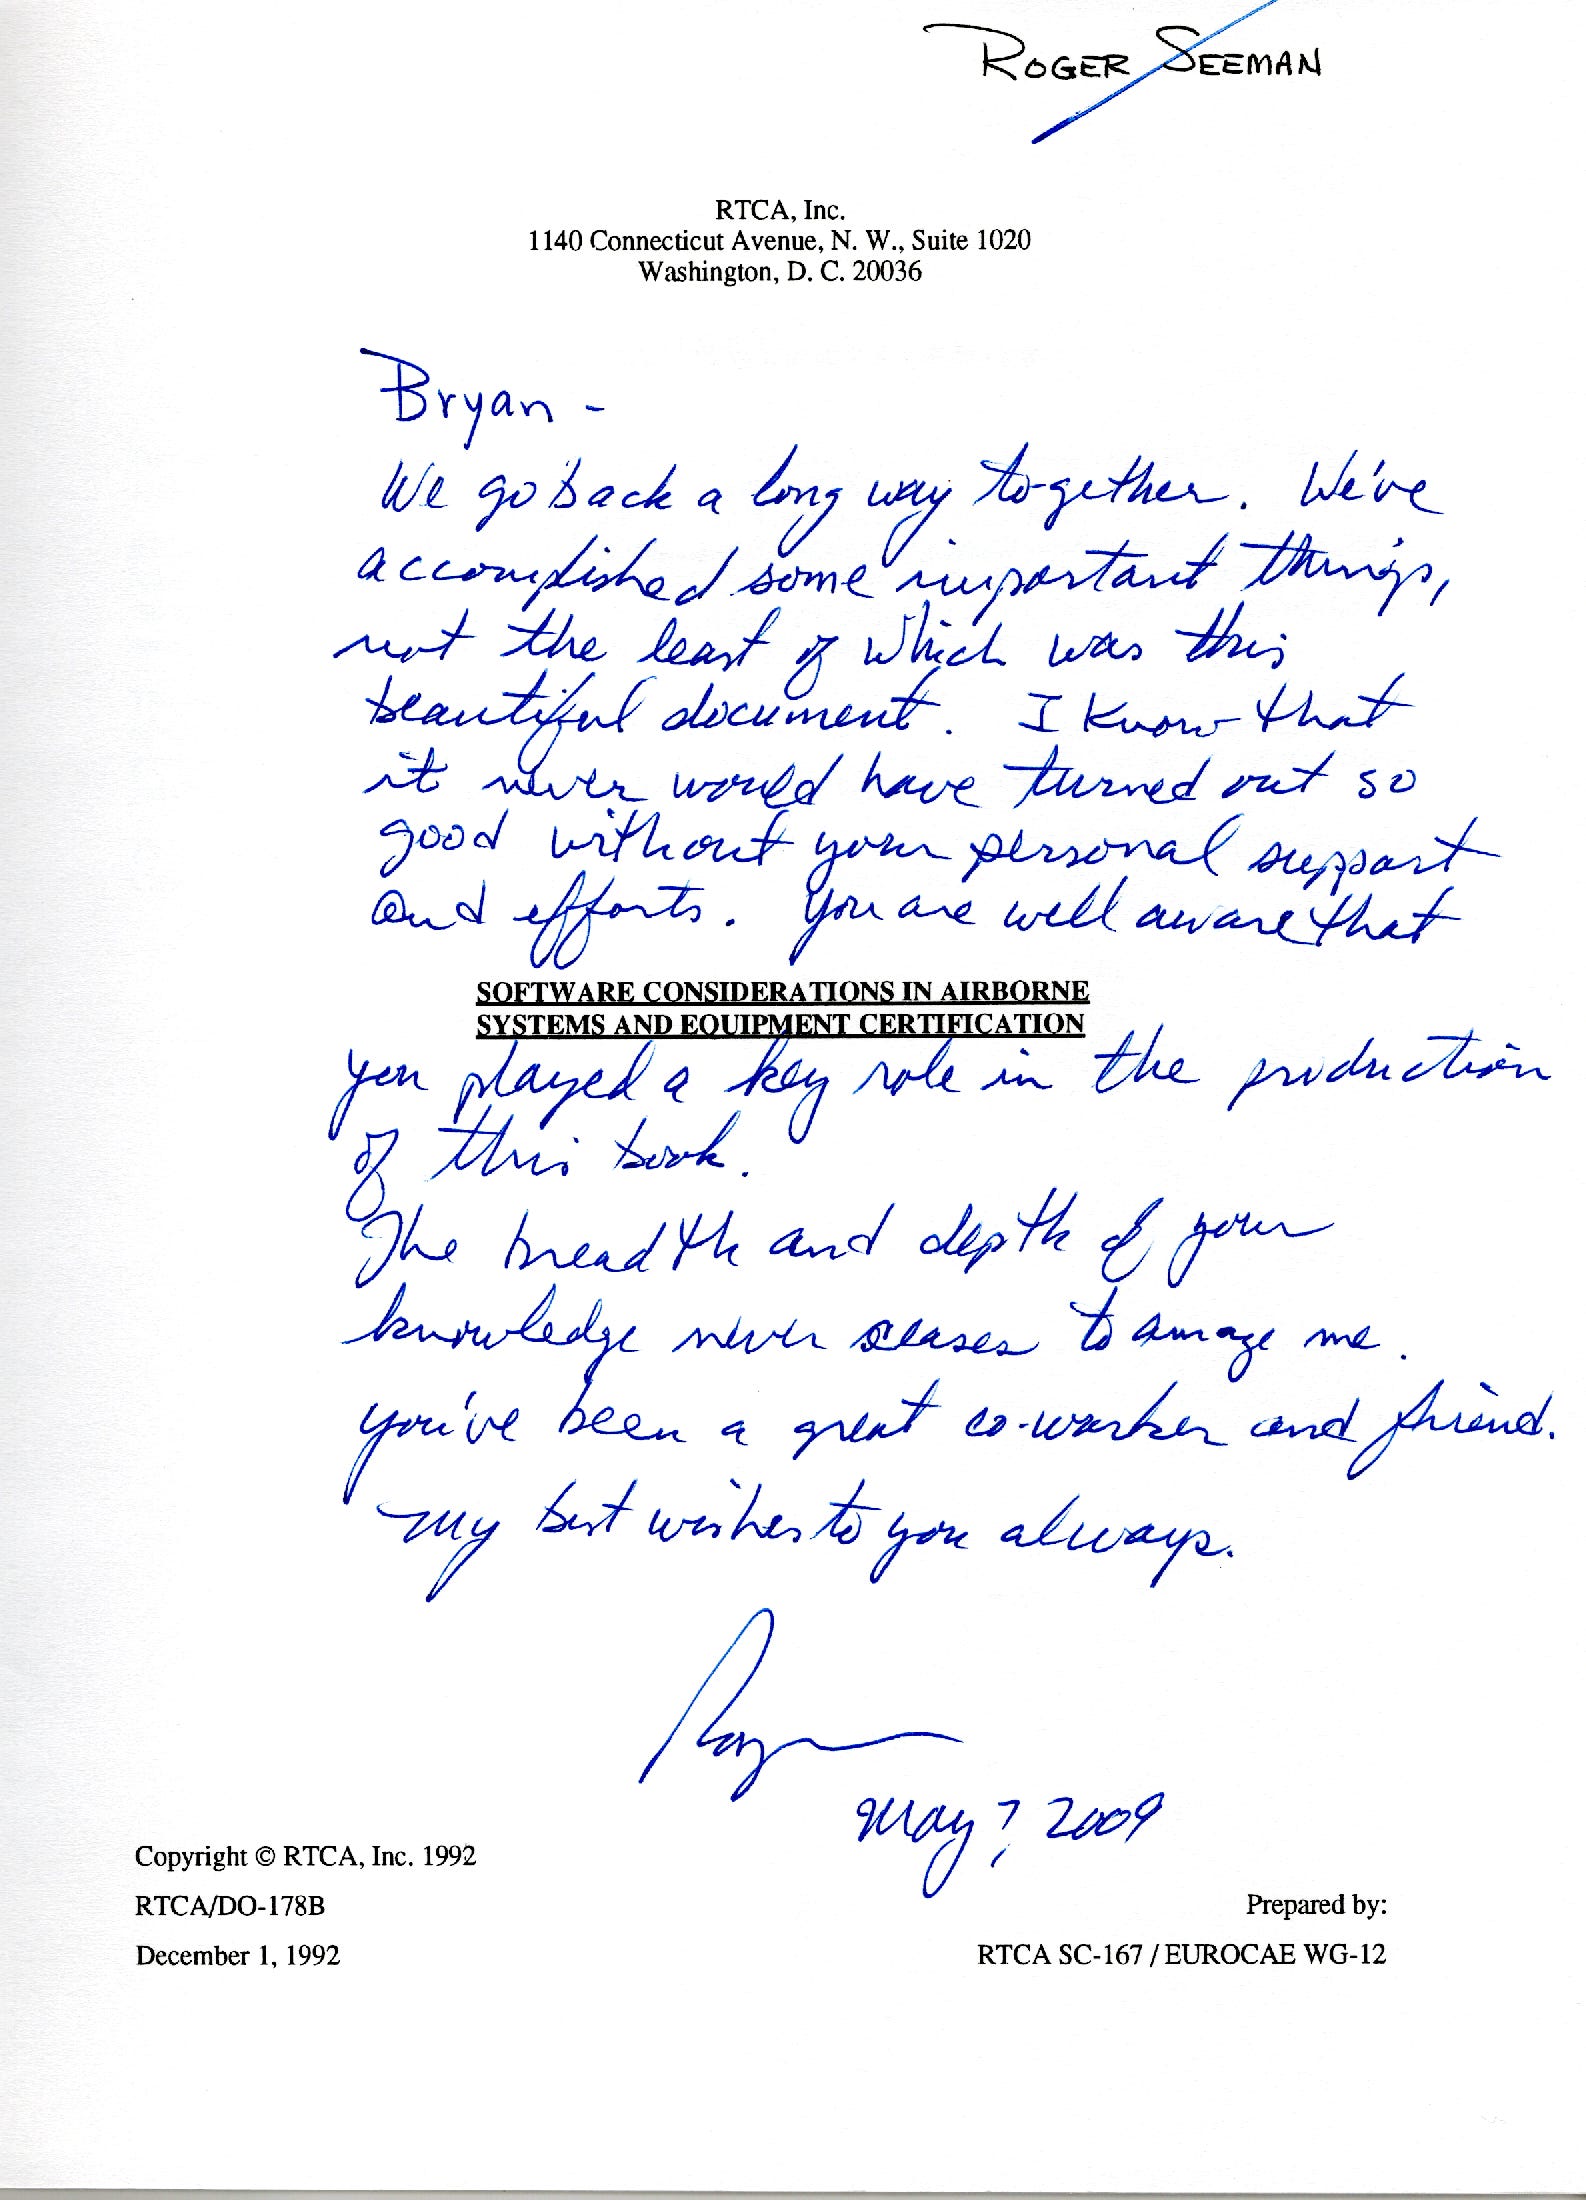 ROGER SEEMAN
RTCA, Inc.
1140 Connecticut Avenue, N. W., Suite 1020
Washington, D. C. 20036
Bryan -
We go back a long way together. We've
accomplished some important things,
not the least of which was this
beautiful document. I know that
it never would have turned out so
good without your personal support
and efforts. You are well aware that
SOFTWARE CONSIDERATIONS IN AIRBORNE
SYSTEMS AND EQUIPMENT CERTIFICATION
you played a key role in the production
of this book.
The breadth and depth of your
knowledge never ceases to amaze me.
You've been a great co-worker and friend.
My best wishes to you always.
Roger
May 7, 2009
Copyright © RTCA, Inc. 1992
RTCA/DO-178B
Prepared by:
December 1, 1992
RTCA SC-167 / EUROCAE WG-12